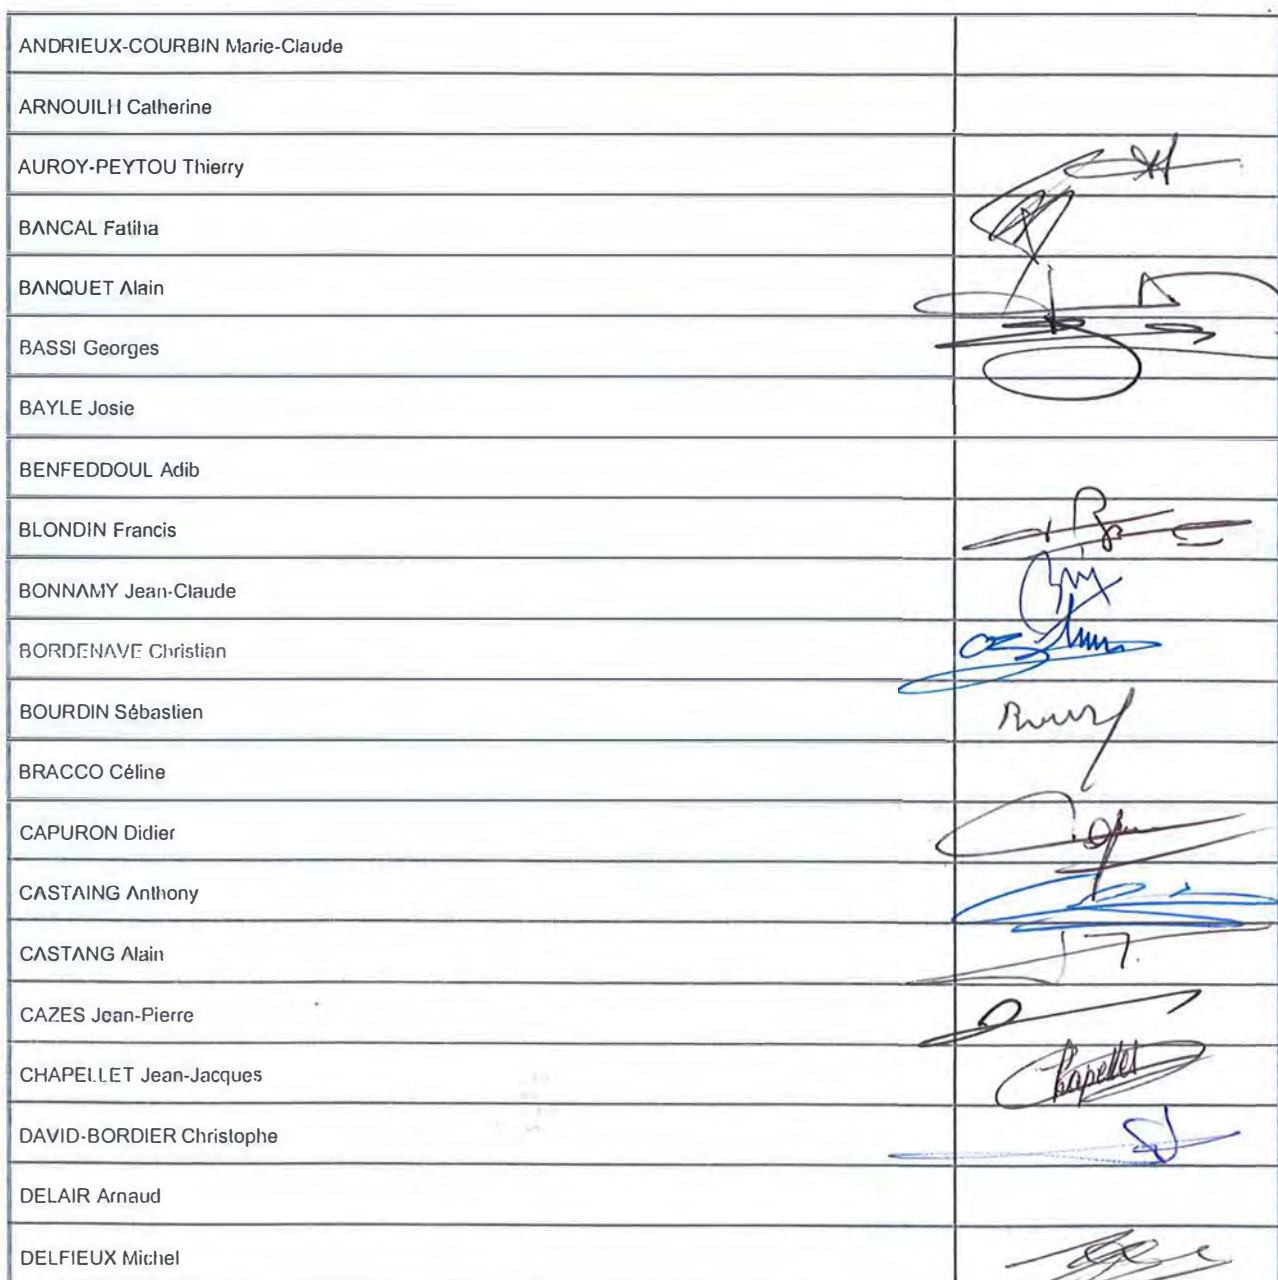 ANDRIEUX-COURBIN Marie-Claude
ARNOUILH Catherine
AUROY-PEYTOU Thierry
BANCAL Fatiha
BANQUET Alain
BASSI Georges
BAYLE Josie
BENFEDDOUL Adib
BLONDIN Francis
BONNAMY Jean-Claude
BORDENAVE Christian
BOURDIN Sébastien
BRACCO Céline
CAPURON Didier
CASTAING Anthony
CASTANG Alain
CAZES Jean-Pierre
CHAPELLET Jean-Jacques
Chapellet
DAVID-BORDIER Christophe
DELAIR Arnaud
DELFIEUX Michel